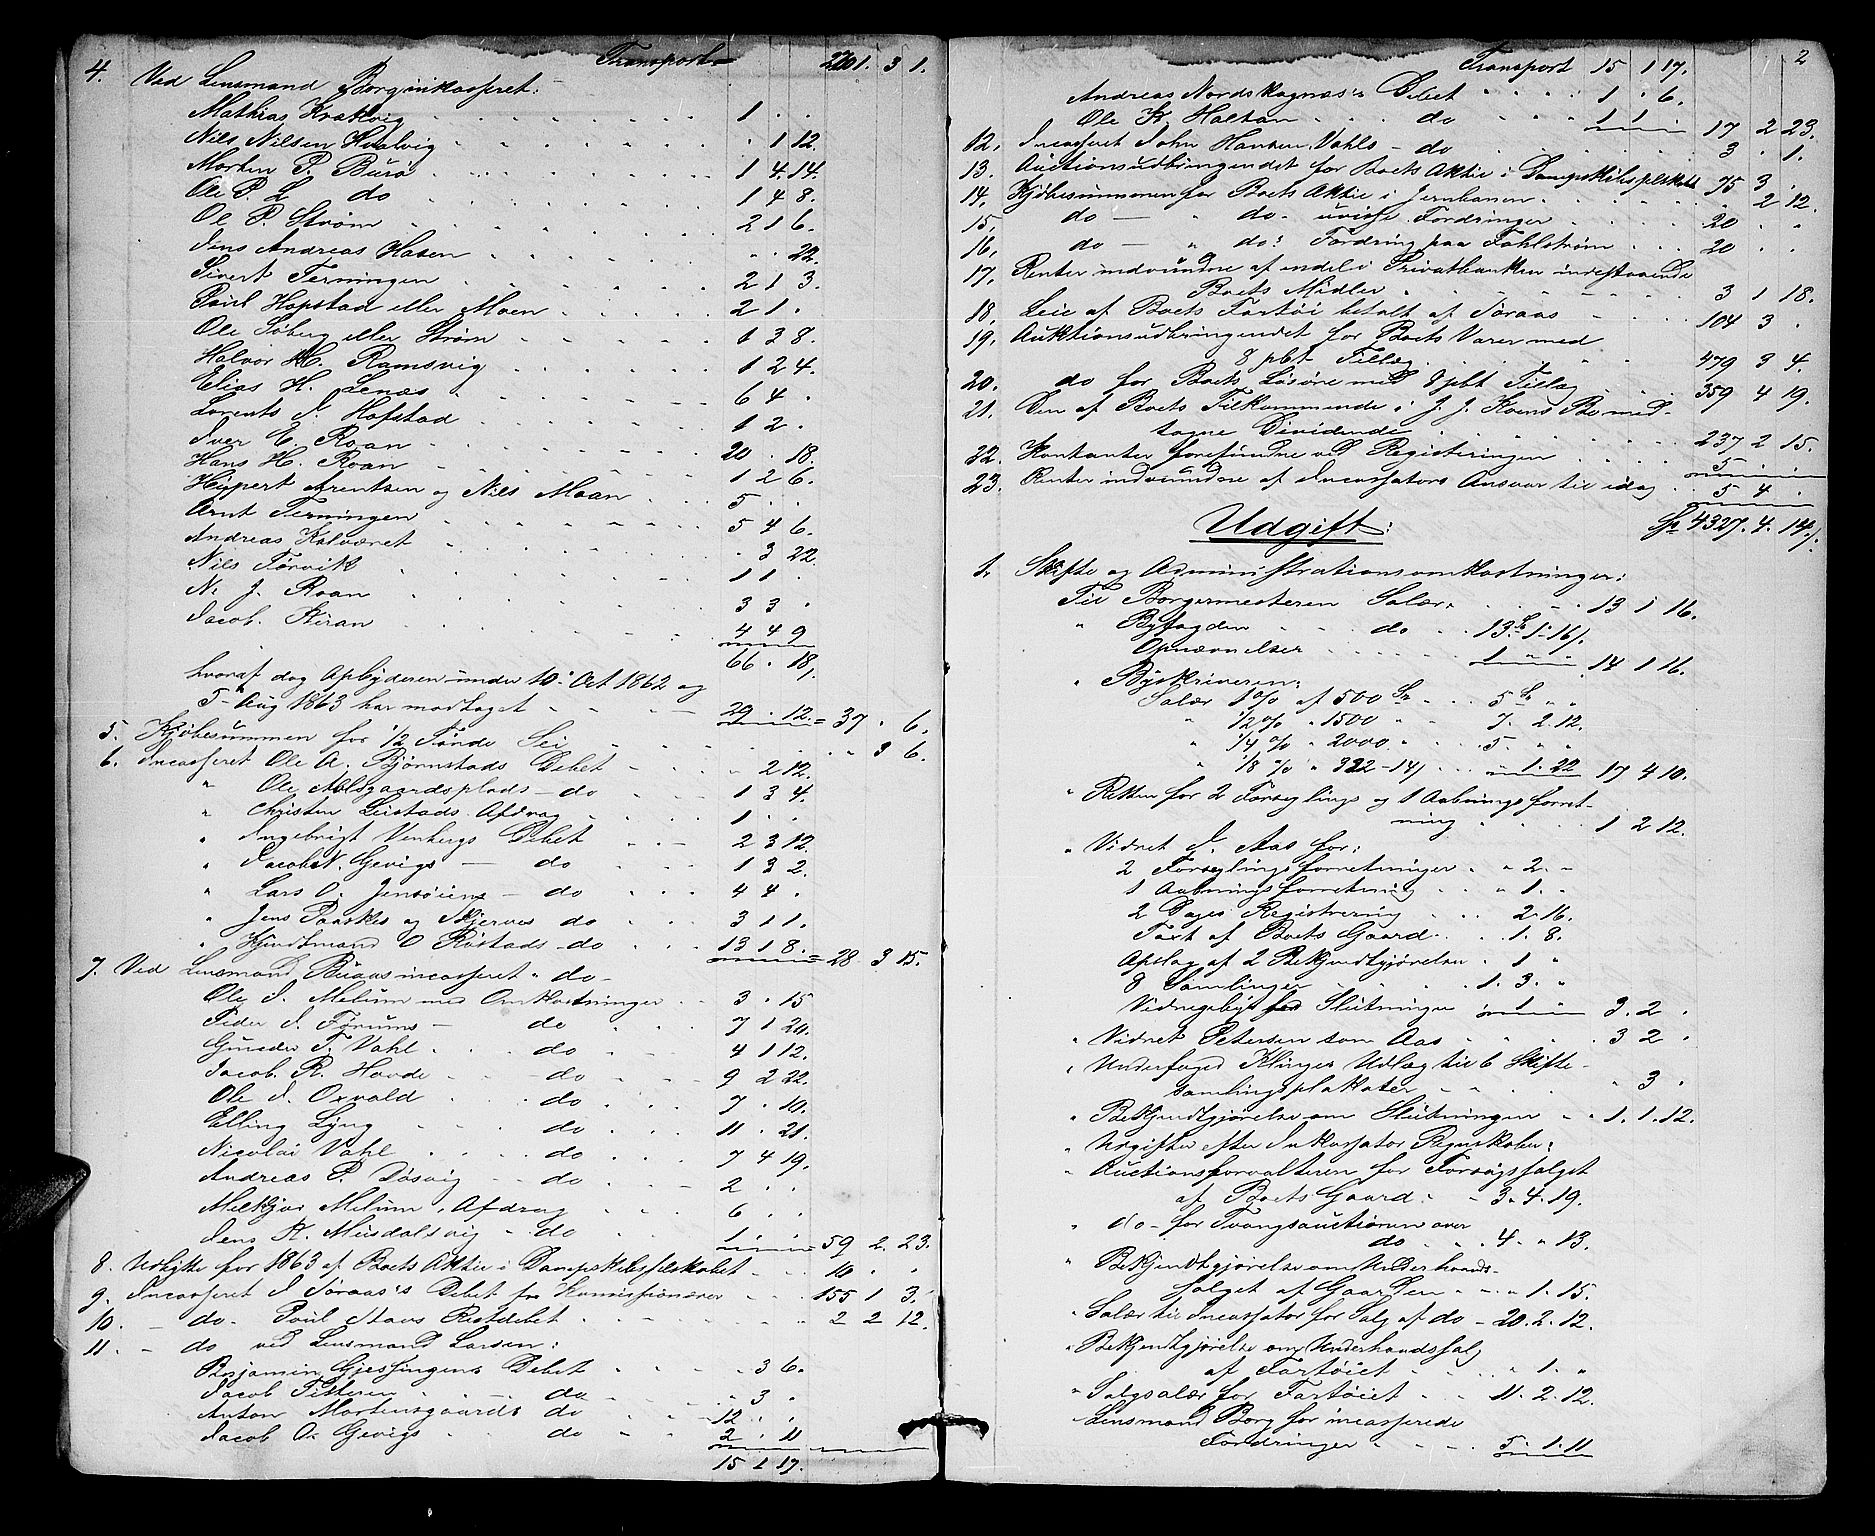 Transport 2701. 3 1.
4. Ved Lensmand Borg inkasseret:
Mathias Krakvig 1 . .
Nils Nilsen Hvalvig . 1 12.
Morten P. Burø 1 4. 14.
Ole P. L do 1 4 8.
Ol P. Strøm 2 1 6.
Jens Andreas Hasen . . 22.
Sivert Terningen 2 1 3.
Poul Hopstad eller Moen 2 1 .
Ole Søberg eller Strøm 1 3 8.
Halvor H. Ramsvig 1 2 4.
Elias H. Lenæs 6 4 .
Lorents J. Hofstad 1 2 .
Iver E. Roan 20 . 18.
Hans H. Roan 1 2 6.
Hippert Arentsen og Nils Moan 5 . .
Arnt Terningen 5 4 6.
Andreas Kalværet . 3 22.
Nils Førvik 1 1 .
N. J. Roan 3 3 .
Jacob Kiran 4 4 9
66 . 18/.
hvoraf dog Afbyderen under 10. Oct 1862 og
5. Aug 1863 har modtaget 29 . 12. = 37 . 6.
5. Kjøbesummen for 1/2 Tønde Sei . 3 6.
6. Incasseret Ole A. Bjørnstads Debet . 2 12.
" Ole Ablsgaardsplads - do 1 3 4.
" Christen Leistads Afdrag 1 . .
" Ingebrigt Venbergs Debet 2 3 12.
" Jacob N. Gevigs - do 1 3 2.
" Lars O. Jensøiens - do 4 4 .
" Jens Paaskes og Skjerves do 3 1 1.
" Kjøbmand O Røstads - do 13 1 8. = 28 3 15.
7. Ved Lensmand Buaas incasseret do
Ole J. Melum med Omkostninger 3 . 15
Peder J. Forums - do 7 1 20.
Gunder T. Vahl do 4 1 12.
Jacob R. Hovde do 9 2 22.
Ole J. Oxvold do 7 . 10.
Elling Lyng do 11 . 21.
Nicolai Vahl do 7 4 19.
Andreas P. Døsvig do 2 . .
Melkjor Melum, Afdrag 6 . .
Jens K. Musdalsvig - do 1 . . = 59 2. 23.
8. Udbytte for 1863 af Boets Aktie i Dampskibsselskabet 10 . .
9. Incasseret J Søraas's Debet fra Kommissionærer 155 1 3.
10. - do - Poul Aaas Restdebet 2 2 12.
11. - do ved Lensmand Larsen:
Benjamin Gjessingens Debet . 3 6.
Jacob Fitteren do . 3 .
Anton Mortensgaards do 12 . .
Jacob O. Gevigs do 2 . 11
15 1 17.
2
Transport 15 1 17.
Andreas Nordskagnæs's Debet 1 . 6.
Ole K. Haltan do 1 1 . 17 2 23.
12. Incasseret John Hansen Vahls - do 3 . 1.
13. Auctionsudbringendet for Boets Aktie i Dampskibsselskabet 75 3 .
14. Kjøbesummen for Boets Aktie i Jernbanen . 2 12.
15. do - " do - uvisse Fordringer 20 . .
16. do - " do: Fordring paa Fahlstrøm 20 . .
17. Renter indvundne af endel i Privatbanken indestaaende
Boets Midler 3 1 18.
18. Leie af Boets Fartøi betalt af Søraas 104 3 .
19. Auktionsudbringendet for Boets Varer med
8 pbt Tillæg 479 3 4.
20. do for Boets Løsøre med 8 pbt Tillæg 359 4 19.
21. Den af Boets Tilkommende i J. J. Koens Bo mod-
tagne Dividende 237 2 15.
22. Kontanter forefundne ved Registeringen 5 . .
23. Renter indvundne af Incassators Ansvar til idag 5 4 .
Sp 4327. 4. 14/.
Udgift:
1. Skifte og Administrationsomkostninger:
Til Borgermesteren Salær 13 1 16.
" Byfogden do 13 Sp 1. 16/.
Opnævnelser 1 " " 14 1 16.
" Byskriveren:
Salær 1% af 500 Sp 5 Sp " "
" 1/2 % " 1500 " 7. 2. 12.
" 1/4 % " 2000 " 5. " "
" 1/8 % " 322 - 14/ " 1. 22 17 4 10.
" Retten for 2 Forseglings og 1 Aabningsforret-
ning 1 2 12.
" Vidnet J. Aas for:
2 Forseglingsforretninger " 2. "
1 Aabningsforretning " 1. "
2 Dages Registrering 2. 16.
Taxt af Boets Gaard 1. 8.
Opslag af 2 Bekjendtgjørelser 1 "
8 Samlinger 1. 3. "
Vidnegebyr ved Slutningen 1 3. 2 .
" Vidnet Petersen som Aas 3 2 .
" Underfoged Klinges Udlæg til 6 Skifte-
samlingsplakater " 3 .
" Bekjendtgjørelse om Slutningen 1. 1. 12.
" Udgifter efter Inkassator Regnskaber:
" Auctionsforvalteren for Forsøgssalget
af Boets Gaard 3. 4. 19.
" do - for Tvangsauctionen over
do 4. " 13.
" Bekjendtgjørelse om Underhaands-
salget af Gaarden " 1. 15.
" Salær til Incassator for Salg af do - 20. 2. 12.
" Bekjendtgjørelse om Underhandssalg
af Fartøiet " 1. "
" Salgsalær for Fartøiet 11. 2. 12.
" Lensmand Borg for incasserede
Fordringer 5. 1. 11